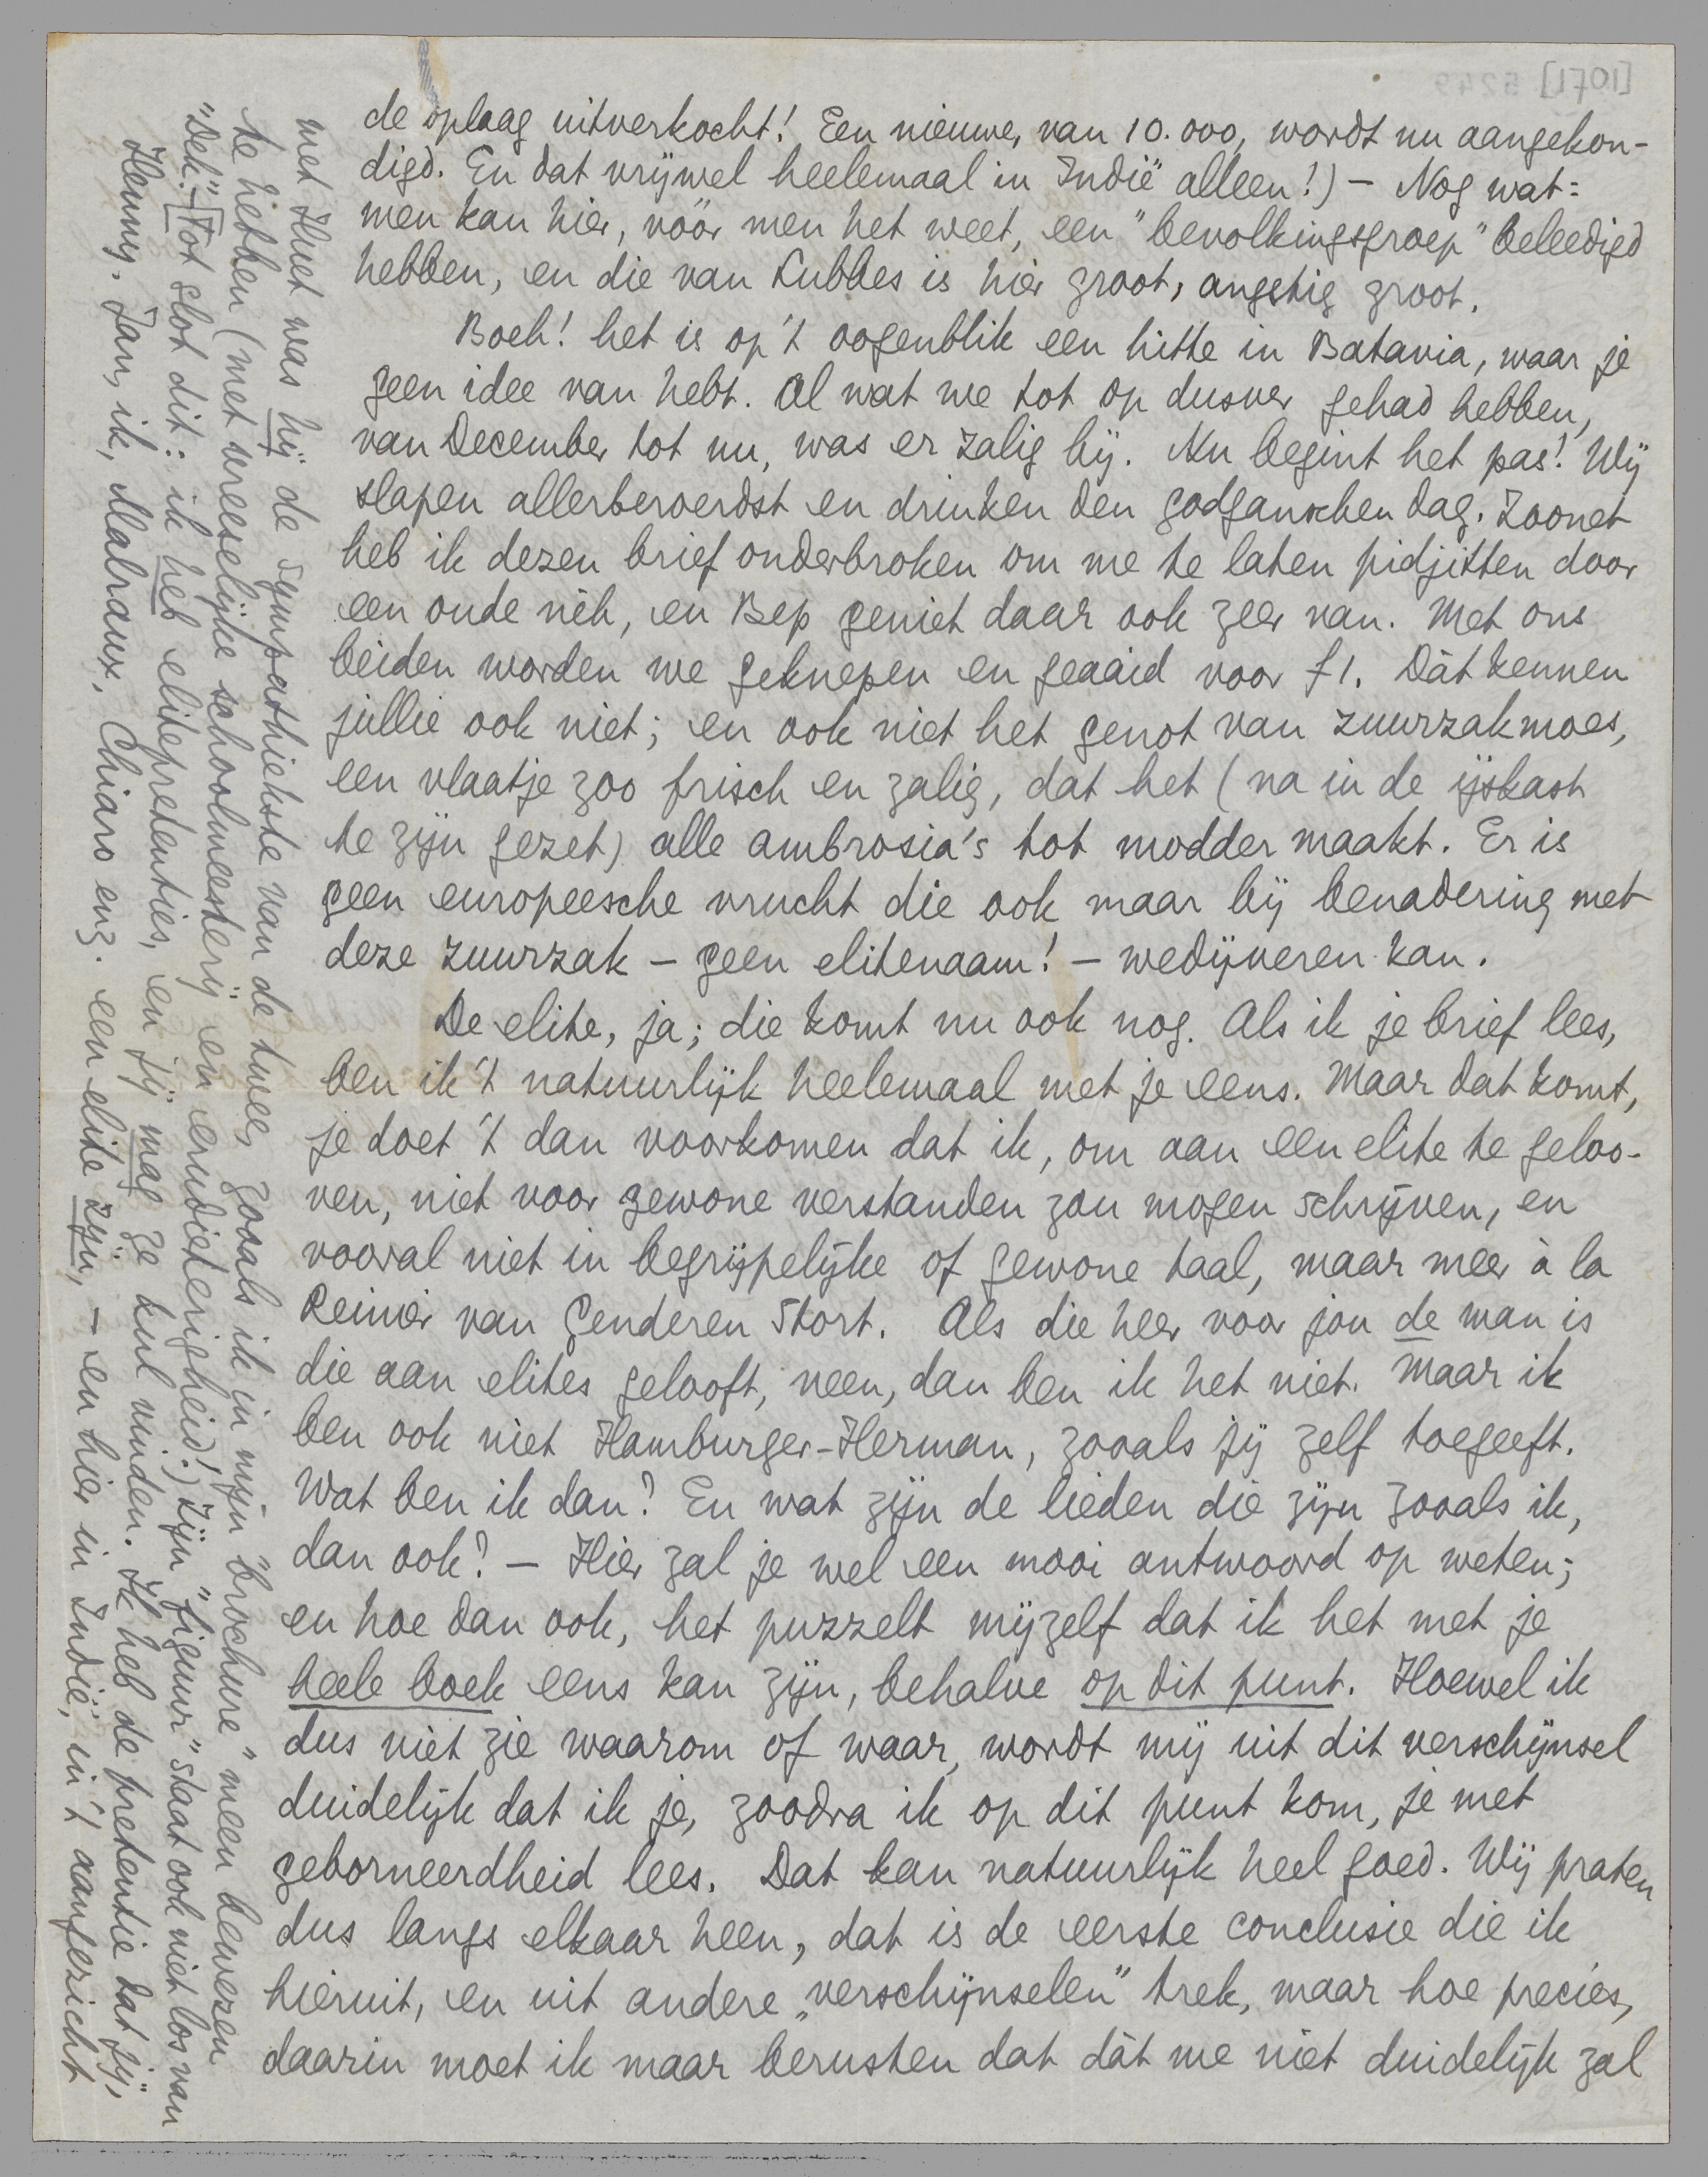 de oplaag uitverkocht! Een nieuwe, van 10.000, wordt nu aangekon-
digd. En dat vrijwel heelemaal in Indië alleen!) – Nog wat:
men kan hier, vóór men het weet, een "bevolkingsgroep" beleedigd
hebben, en die van Lubbes is hier groot, angstig groot.
Boeh! het is op 't oogenblik een hitte in Batavia, waar je
geen idee van hebt. Al wat we tot op dusver gehad hebben,
van December tot nu, was er zalig bij. Nu begint het pas! Wij
slapen allerberoerdst en drinken den godganschen dag. Zoonet
heb ik dezen brief onderbroken om me te laten pidjitten door
een oude nèh, en Bep geniet daar ook zeer van. Met ons
beiden worden we geknepen en geaaid voor f1. Dàt kennen
jullie ook niet; en ook niet het genot van zuurzakmoes,
een vlaatje zoo frisch en zalig, dat het (na in de ijskast
te zijn gezet) alle ambrosia's tot modder maakt. Er is
geen europeesche vrucht die ook maar bij benadering met
deze zuurzak – geen elitenaam! – wedijveren kan.
De elite, ja; die komt nu ook nog. Als ik je brief lees,
ben ik 't natuurlijk heelemaal met je eens. Maar dat komt,
je doet 't dan voorkomen dat ik, om aan een elite te geloo-
ven, niet voor gewone verstanden zou mogen schrijven, en
vooral niet in begrijpelijke of gewone taal, maar meer à la
Reinier van Genderen Stort. Als die heer voor jou de man is
die aan elites gelooft, neen, dan ben ik het niet. Maar ik
ben ook niet Hamburger-Herman, zooals jij zelf toegeeft.
Wat ben ik dan? En wat zijn de lieden die zijn zooals ik,
dan ook? – Hier zal je wel een mooi antwoord op weten;
en hoe dan ook, het puzzelt mijzelf dat ik het met je
heele boek eens kan zijn, behalve op dit punt. Hoewel ik
dus niet zie waarom of waar, wordt mij uit dit verschijnsel
duidelijk dat ik je, zoodra ik op dit punt kom, je met
geborneerdheid lees. Dat kan natuurlijk heel goed. Wij praten
dus langs elkaar heen, dat is de eerste conclusie die ik
hieruit, en uit andere „verschijnselen" trek, maar hoe precies,
daarin moet ik maar berusten dat dàt me niet duidelijk zal
met Huet was hij de sympathiekste van de twee, zooals ik in mijn "brochure" meen bewezen
te hebben (met vreeselijke schoolmeesterij en erudieterigheid!) Zijn "figuur" staat ook niet los van
"Dek". [Tot slot dit: ik heb elitepretenties, en jij mag ze kul vinden. Ik heb de pretentie dat jij,
Henny, Jan, ik, Malraux, Chiaro enz. een elite zijn, – en hier in Indië, in 't aangezicht
[10f1] 5249